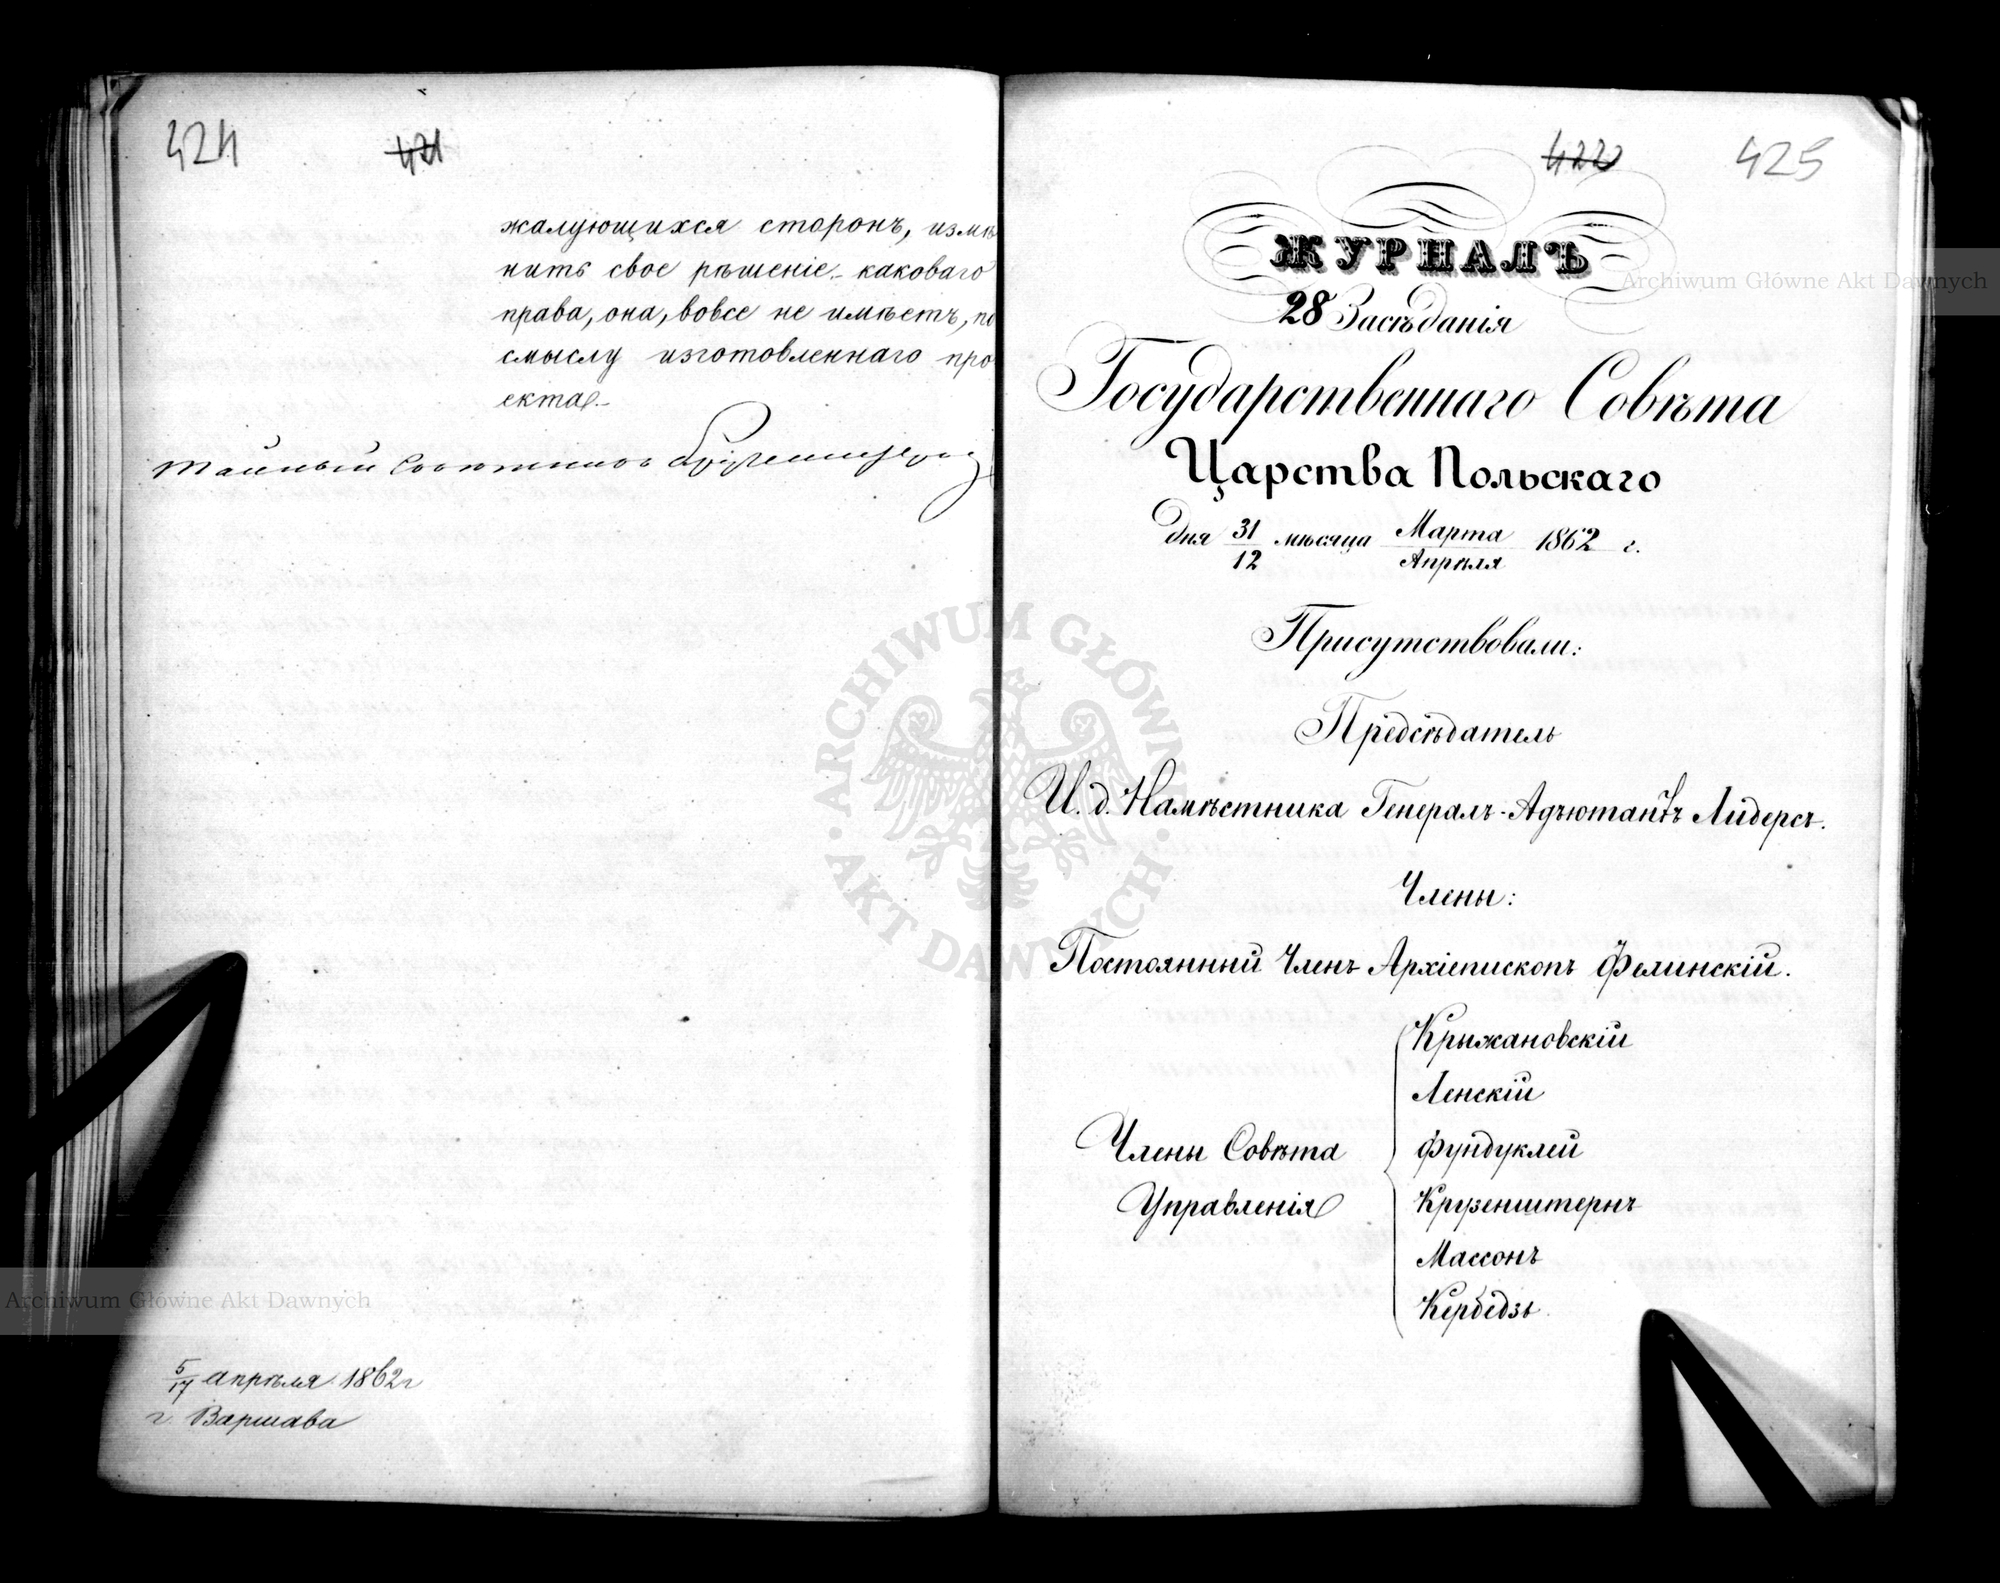 424
421
жалующихся сторонъ, измѣ
нить свое рѣшеніе – каковаго
права, она, вовсе не имѣетъ, по
смыслу изготовленнаго про
екта.–
Тайный Совѣтникъ
5/17 апрѣля 1862 г
г. Варшава
422
425
ЖУРНАЛЪ
28 Засѣданія
Государственнаго Совѣта
Царства Польскаго
дня 31/12 мѣсяца Марта/Апрѣля 1862 г.
Присутствовали:
Предсѣдатель
И. д. Намѣстника Генералъ-Адъютантъ Лидерсъ.
Члены:
Постоянный Членъ Архіепископъ Фелинскій.
Члены Совѣта
Управленія
Крыжановскій
Ленскій
Фундуклей
Крузенштернъ
Массонъ
Кербедзъ
Archiwum Główne Akt Dawnych
Archiwum Główne Akt Dawnych
ARCHIWUM GŁÓWNE
AKT DAWNYCH